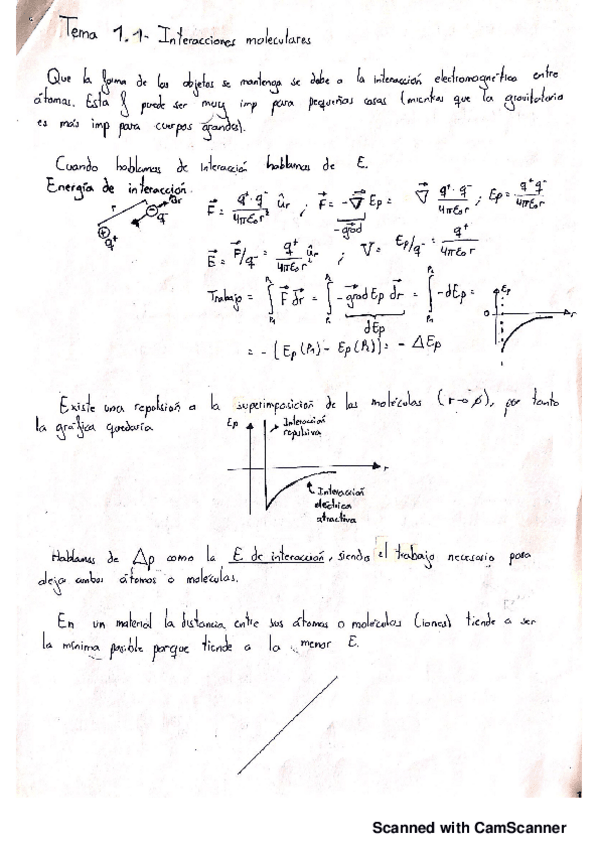 Tema 1.1- Interacciones moleculares
Que la forma de los objetos se mantenga se debe a la interacción electromagnética entre
átomos. Esta f puede ser muy imp para pequeñas cosas (mientras que la gravitatoria
es más imp para cuerpos grandes).
Cuando hablamos de interacción hablamos de E.
Energía de interacción.
r ûr q⁻ q⁺
F⃗ = q⁺·q⁻/4πε₀r² ûr ; F⃗ = -∇⃗ Ep = ∇⃗ q⁺·q⁻/4πε₀r ; Ep = q⁺q⁻/4πε₀r
-grad
E⃗ = F⃗/q⁻ = q⁺/4πε₀r² ûr ; V = Ep/q⁻ = q⁺/4πε₀r
Trabajo = ∫ F⃗ dr⃗ = ∫ -grad Ep dr⃗ = ∫ -dEp =
P₂ P₁ P₂ P₁ P₂ P₁
dEp
Ep 0 r
= - [Ep(P₁) - Ep(P₁)] = - ΔEp
Existe una repulsión a la superimposición de las moléculas (r→0), por tanto
la gráfica quedaría
Ep
Interacción
repulsiva
r
Interacción
eléctrica
atractiva
Hablamos de Δp como la E de interacción, siendo el trabajo necesario para
deja ambos átomos o moléculas.
En un material la distancia entre sus átomos o moléculas (iones) tiende a ser
la mínima posible porque tiende a la menor E.
1
Scanned with CamScanner